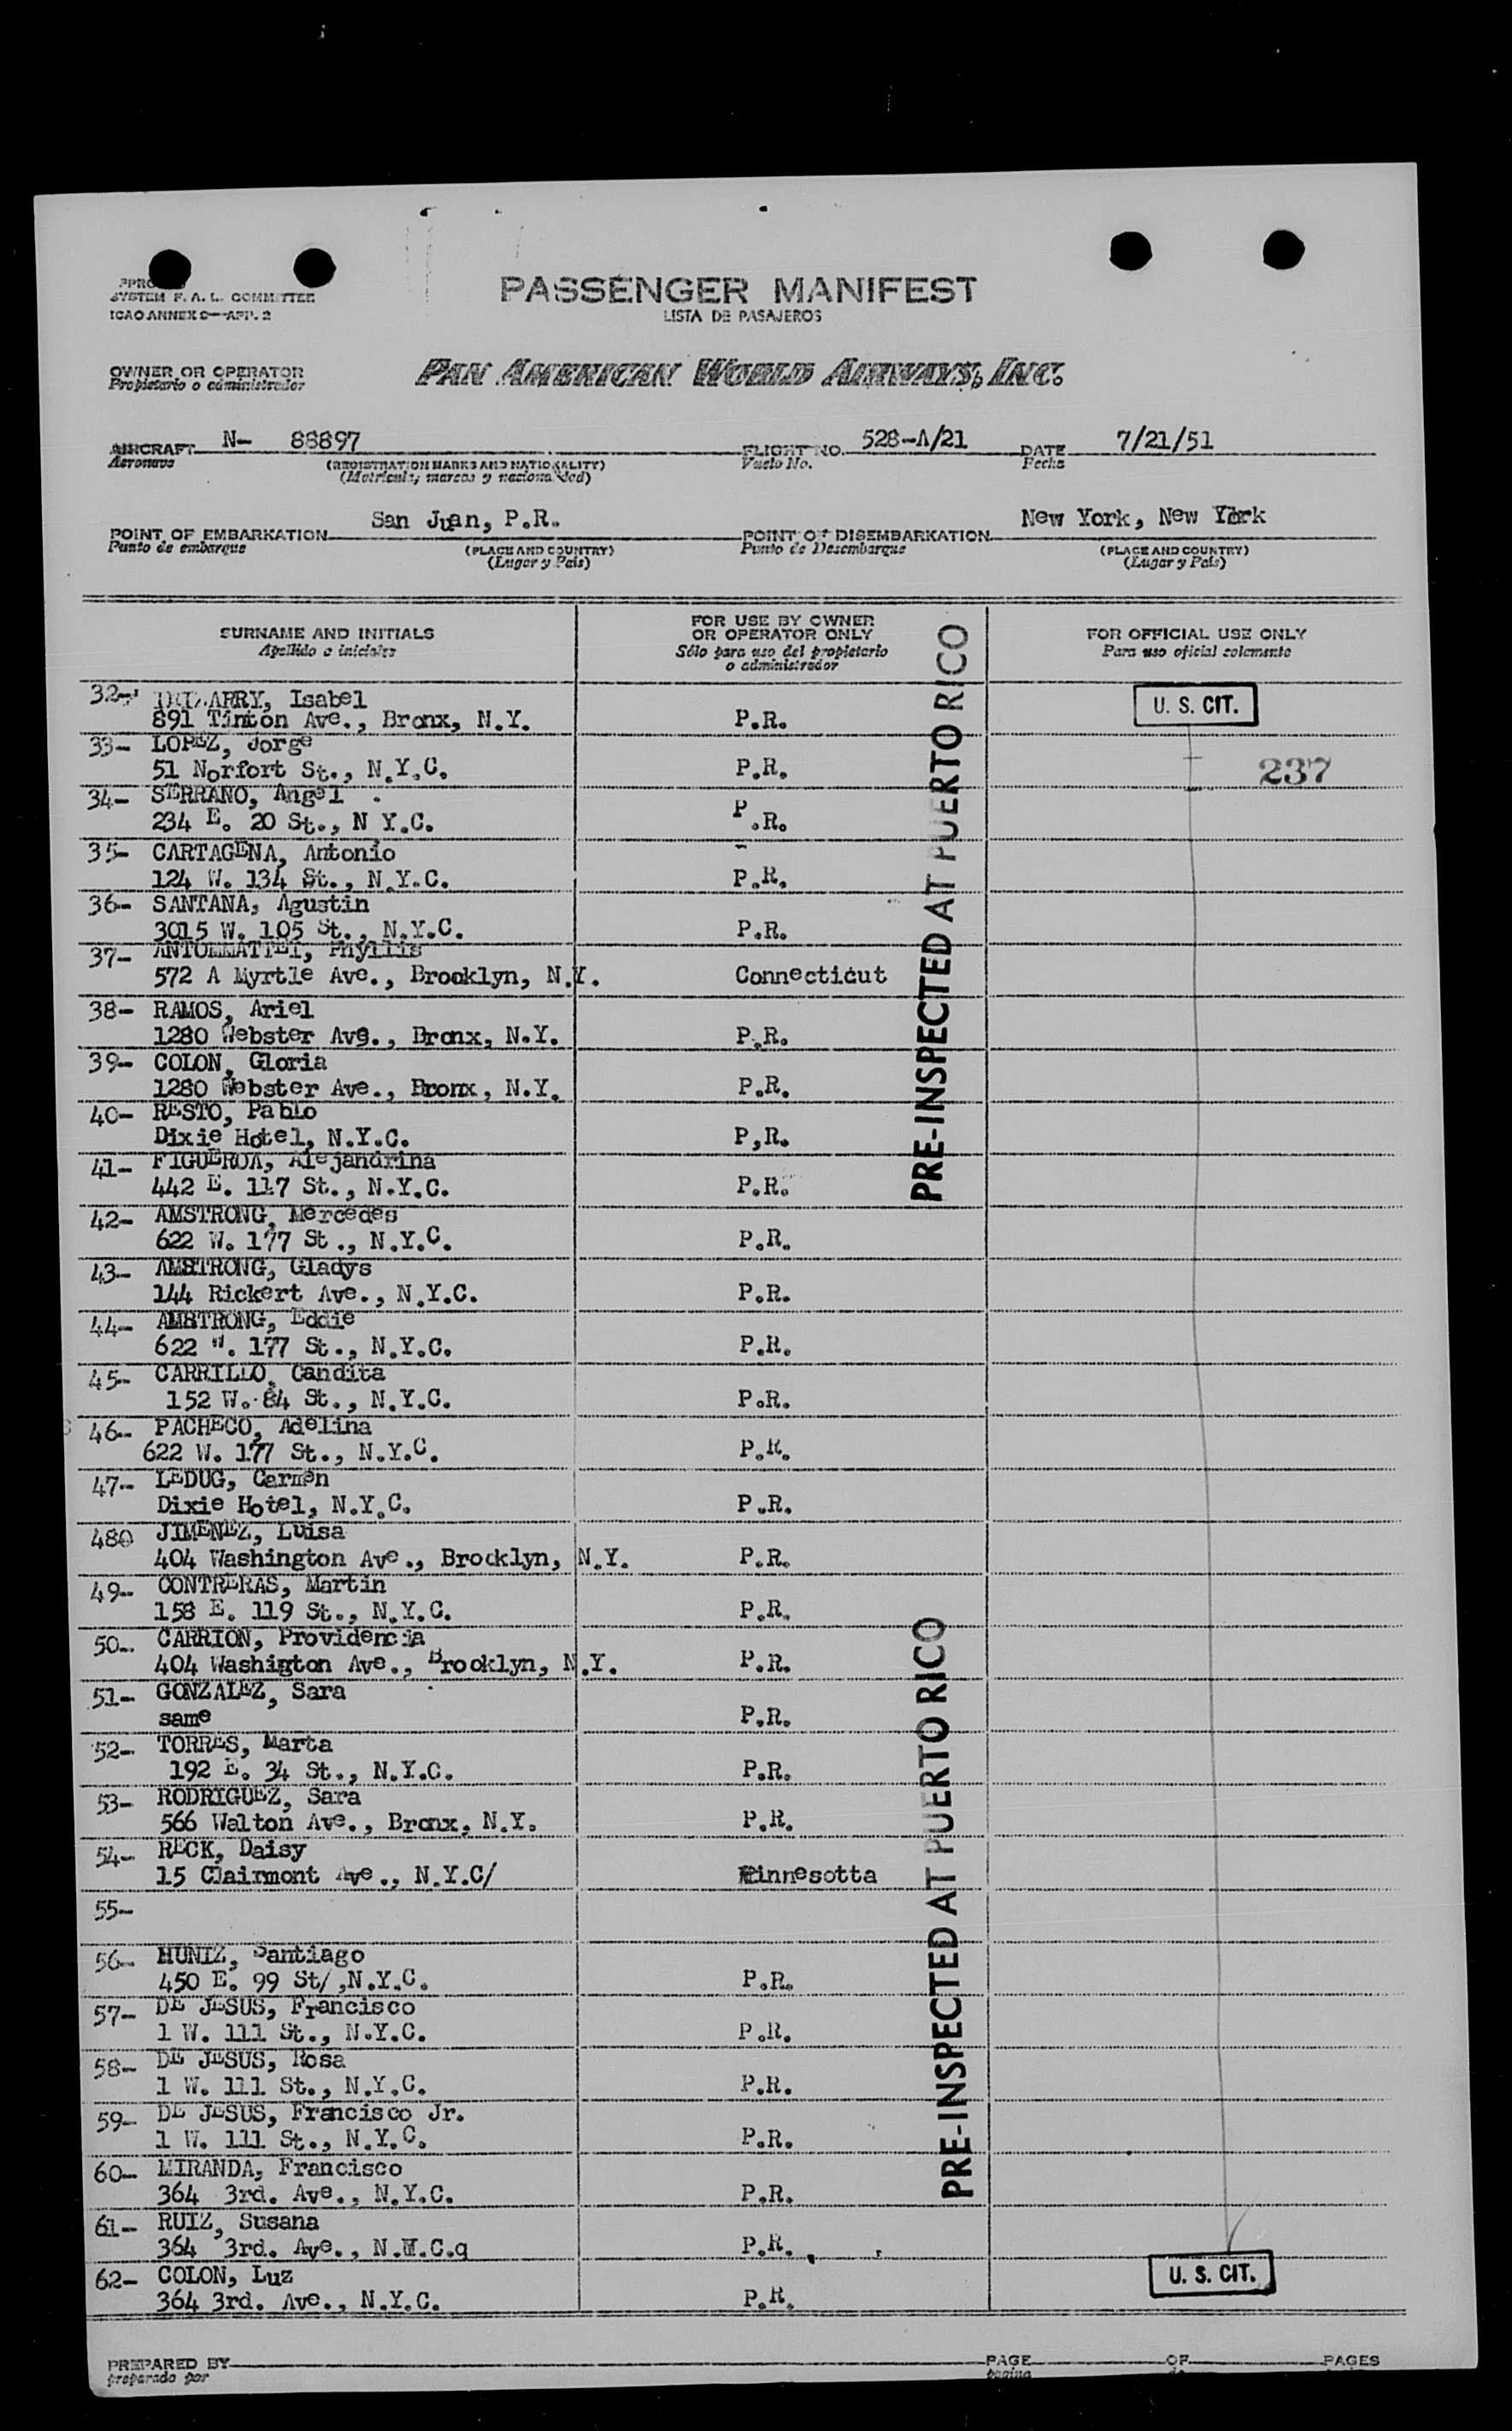 SYSTEM F. A. L. COMMITTEE
ICAO ANNEX 9—APP. 2
PASSENGER MANIFEST
LISTA DE PASAJEROS
OWNER OR OPERATOR
Propietario o administrador
PAN AMERICAN WORLD AIRWAYS, INC.
AIRCRAFT N- 88897 FLIGHT NO. 528-A/21 DATE 7/21/51
Aeronave (REGISTRATION MARKS AND NATIONALITY) Vuelo No. Fecha
(Matricula, marcas y nacionalidad)
POINT OF EMBARKATION San Juan, P.R. POINT OF DISEMBARKATION New York, New York
Punto de embarque (PLACE AND COUNTRY) Punto de Desembarque (PLACE AND COUNTRY)
(Lugar y Pais) (Lugar y Pais)
SURNAME AND INITIALS
Apellido e iniciales
FOR USE BY OWNER
OR OPERATOR ONLY
Sólo para uso del propietario
o administrador
FOR OFFICIAL USE ONLY
Para uso oficial solamente
PRE-INSPECTED AT PUERTO RICO
32- Isabel
891 Tinton Ave., Bronx, N.Y. P.R. U. S. CIT.
33- LOPEZ, Jorge
51 Norfort St., N.Y.C. P.R. 237
34- SERRANO, Angel
234 E. 20 St., N Y.C. P.R.
35- CARTAGENA, Antonio
124 W. 134 St., N.Y.C. P.R.
36- SANTANA, Agustin
3015 W. 105 St., N.Y.C. P.R.
37- ANTOMMATTEI, Phyllis
572 A Myrtle Ave., Brooklyn, N.Y. Connecticut
38- RAMOS, Ariel
1280 Webster Ave., Bronx, N.Y. P.R.
39- COLON, Gloria
1280 Webster Ave., Bronx, N.Y. P.R.
40- RESTO, Pablo
Dixie Hotel, N.Y.C. P,R.
41- FIGUEROA, Alejandrina
442 E. 117 St., N.Y.C. P.R.
42- AMSTRONG, Mercedes
622 W. 177 St., N.Y.C. P.R.
43- AMSTRONG, Gladys
144 Rickert Ave., N.Y.C. P.R.
44- AMSTRONG, Eddie
622 W. 177 St., N.Y.C. P.R.
45- CARRILLO, Candita
152 W. 84 St., N.Y.C. P.R.
46- PACHECO, Adelina
622 W. 177 St., N.Y.C. P.R.
47- LEDUG, Carmen
Dixie Hotel, N.Y.C. P.R.
480 JIMENEZ, Luisa
404 Washington Ave., Brocklyn, N.Y. P.R.
49- CONTRERAS, Martin
158 E. 119 St., N.Y.C. P.R.
50- CARRION, Providencia
404 Washigton Ave., Brooklyn, N.Y. P.R.
51- GONZALEZ, Sara
same P.R.
52- TORRES, Marta
192 E. 34 St., N.Y.C. P.R.
53- RODRIGUEZ, Sara
566 Walton Ave., Bronx, N.Y. P.R.
54- RECK, Daisy
15 Clairmont Ave., N.Y.C/ Minnesotta
55-
56- MUNIZ, Santiago
450 E. 99 St/,N.Y.C. P.R.
57- DE JESUS, Francisco
1 W. 111 St., N.Y.C. P.R.
58- DE JESUS, Rosa
1 W. 111 St., N.Y.C. P.R.
59- DE JESUS, Francisco Jr.
1 W. 111 St., N.Y.C. P.R.
60- MIRANDA, Francisco
364 3rd. Ave., N.Y.C. P.R.
61- RUIZ, Susana
364 3rd. Ave., N.Y.C.q P.R.
62- COLON, Luz
364 3rd. Ave., N.Y.C. P.R. U. S. CIT.
PRE-INSPECTED AT PUERTO RICO
PREPARED BY PAGE OF PAGES
preparado por pagina